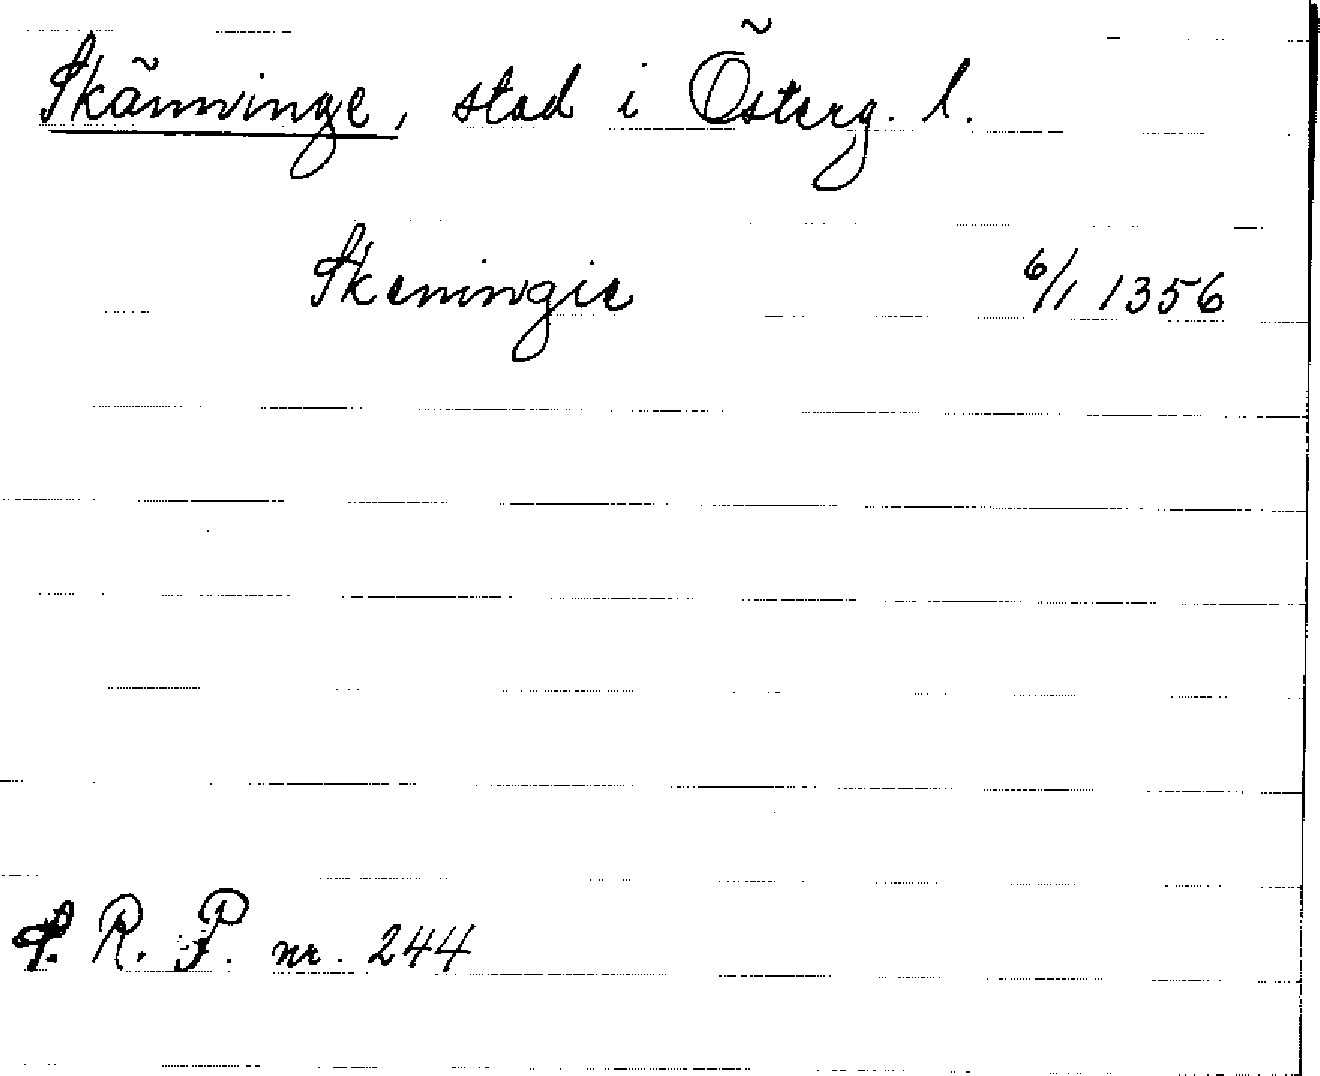 Skänninge, stad i Österg. l.
Skeningie 6/1 1356
S. R. P. nr. 244